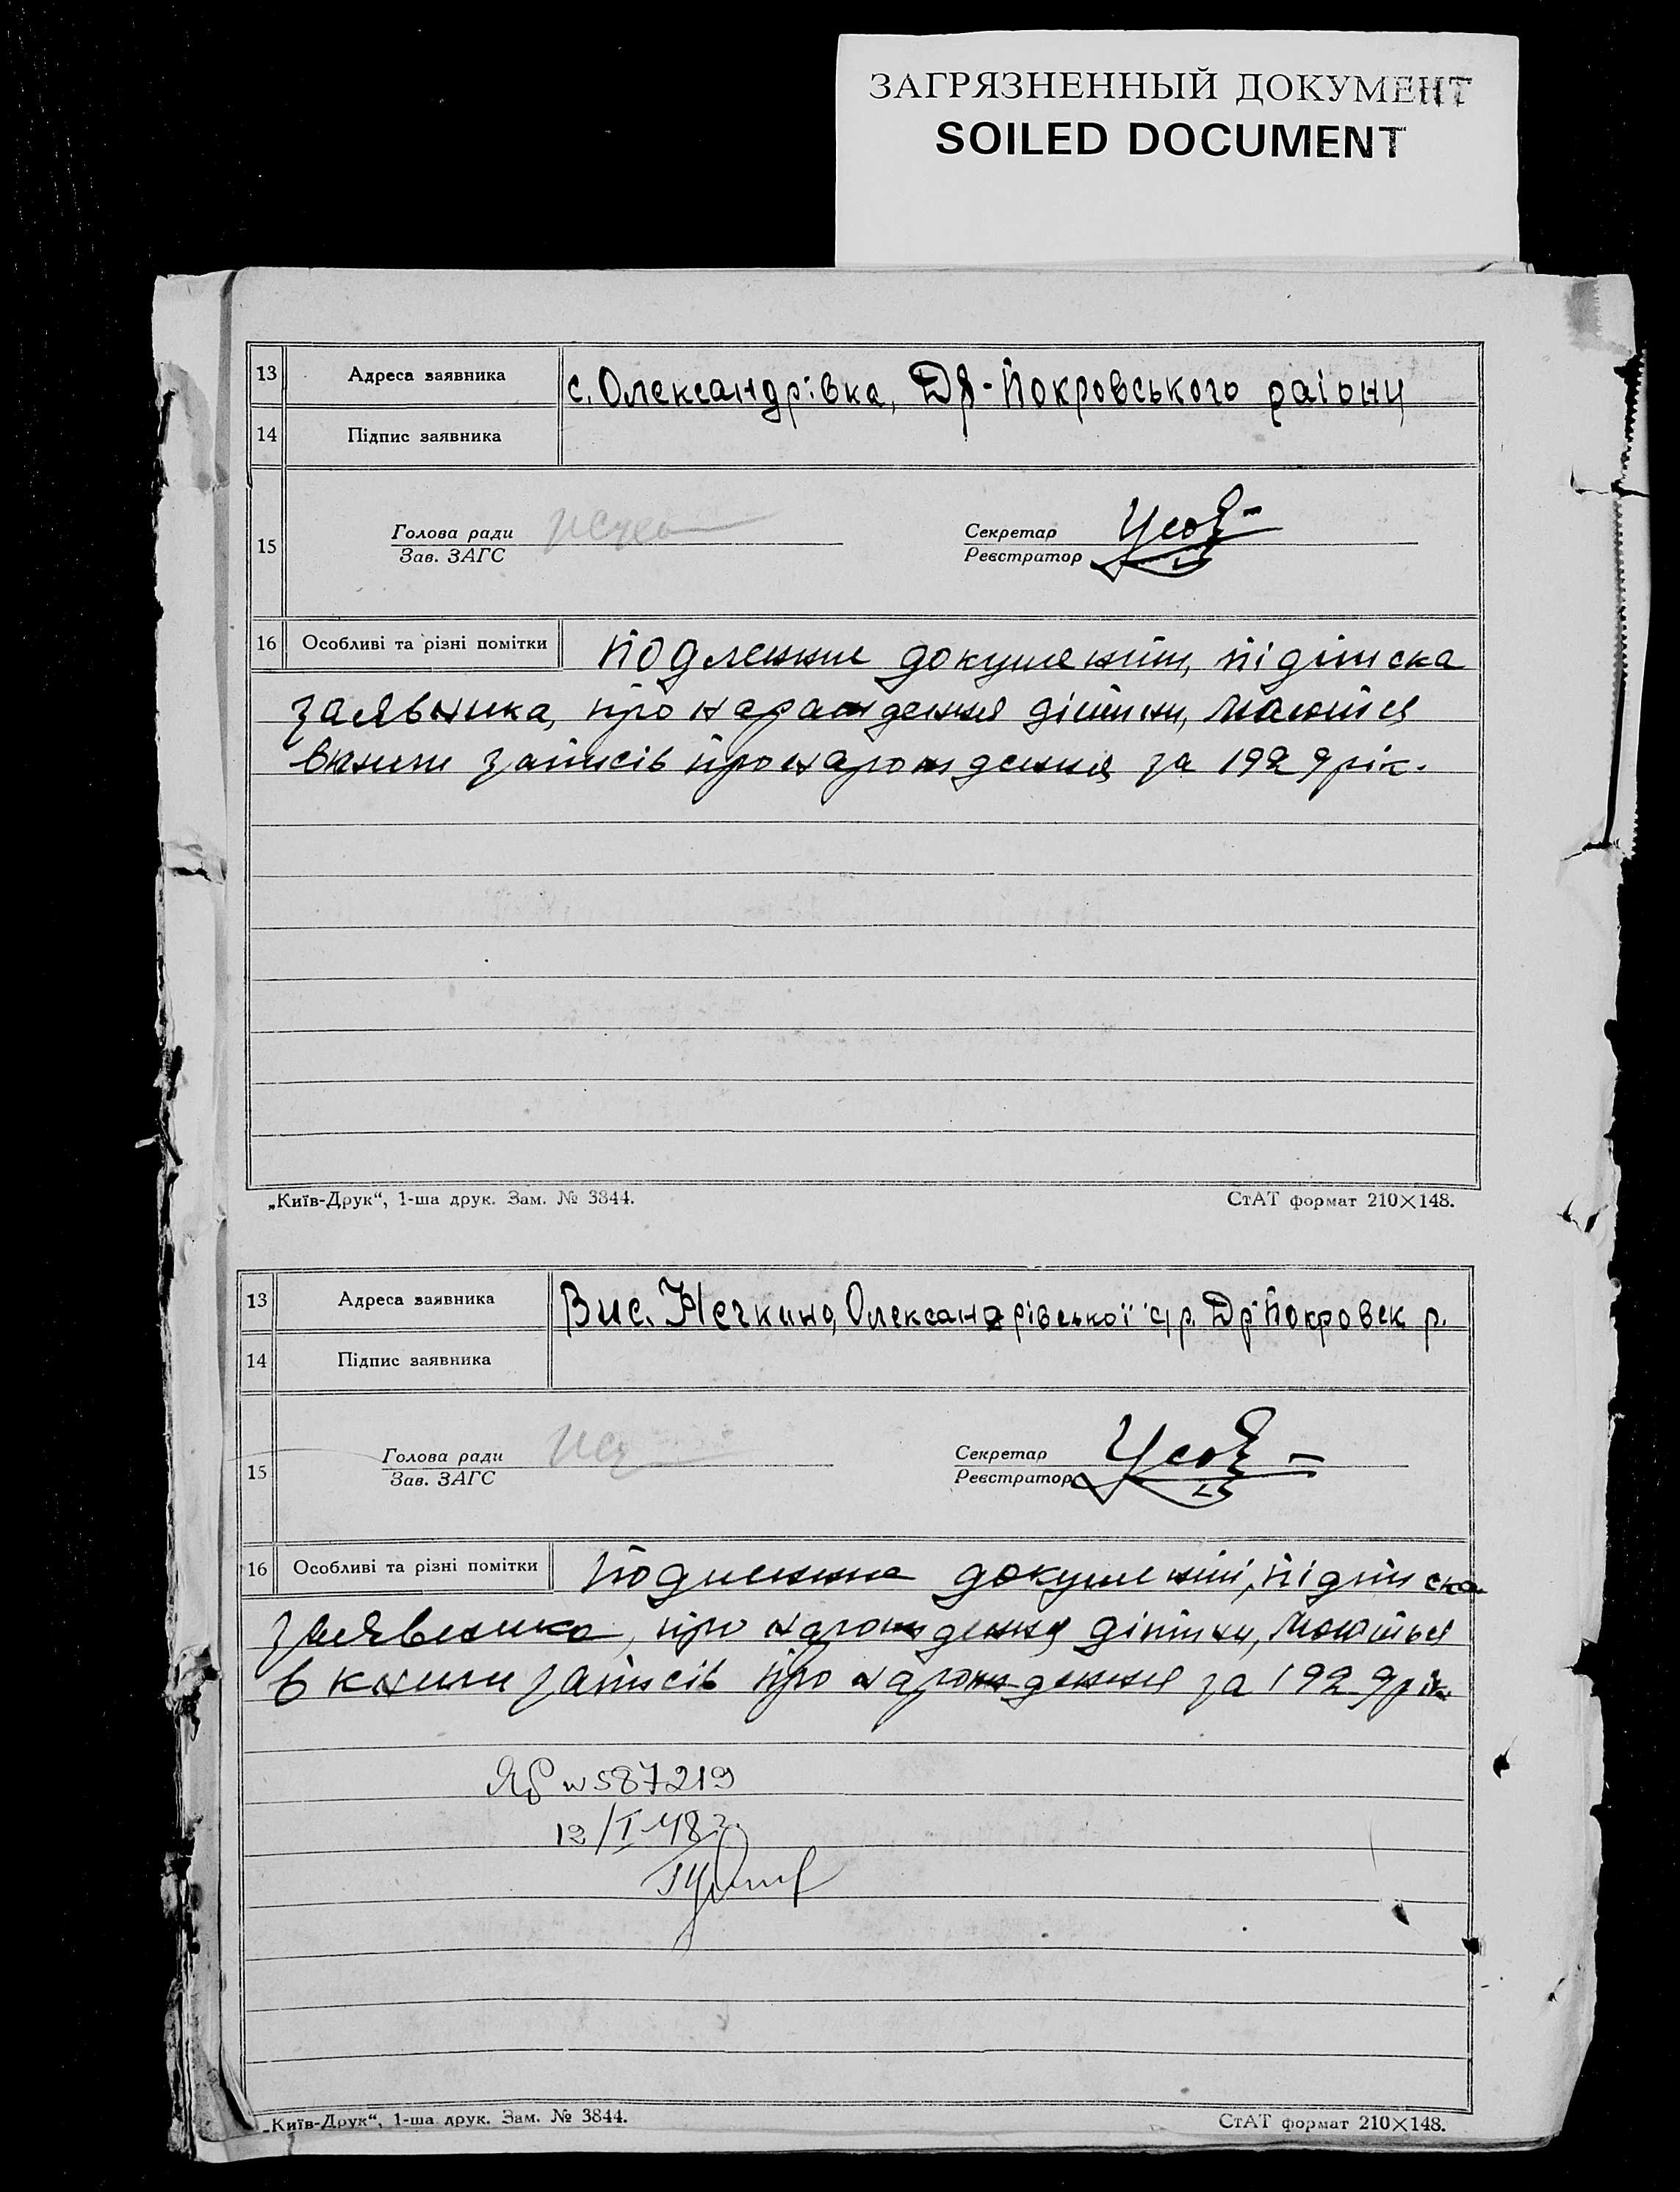 ЗАГРЯЗНЕННЫЙ ДОКУМЕНТ
SOILED DOCUMENT
13 Адреса заявника с. Олександрівка, Др-Покровського раіону
14 Підпис заявника
Голова ради Секретар
15 Зав. ЗАГС Реєстратор
16 Особливі та різні помітки документи, підписка
заявника, про народження дітини, маются
в книги записів про народження за 1929 рік.
„Київ-Друк“, 1-ша друк. Зам. № 3844. СтАТ формат 210×148.
13 Адреса заявника Вис. Нечкино, Олександрівської с/р. Др-Покровск р.
14 Підпис заявника
Голова ради Секретар
15 Зав. ЗАГС Реєстратор
16 Особливі та різні помітки документи, підписка
заявника, про народження дітини, маються
в книги записів про народження за 1929 рік.
ЯБ № 587219
12/I-48 г.
„Київ-Друк“, 1-ша друк. Зам. № 3844. СтАТ формат 210×148.